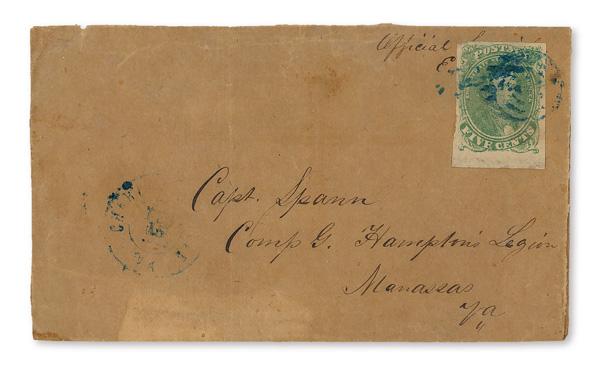 Official
POSTAGE
FIVE CENTS
Capt. Spann
Comp G. Hampton's Legion
Manassas
Va